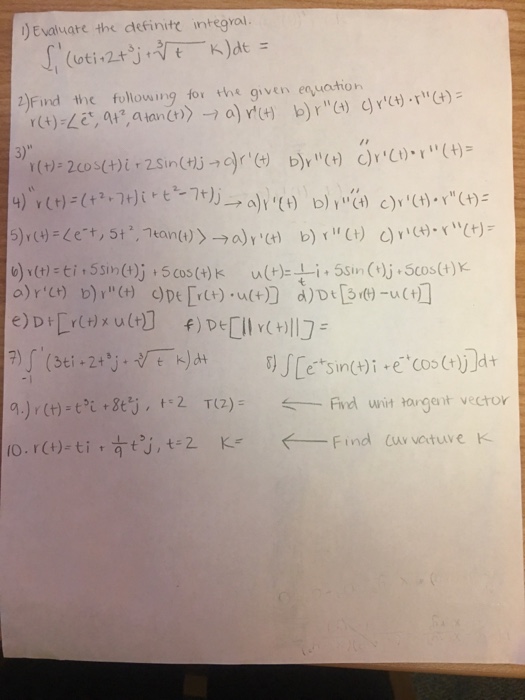 1) Evaluate the definite integral.
∫₋₁¹ (6ti+2t³j+∛t k)dt =
2) Find the following for the given equation
r(t)=<e⁻ᵗ, 9t², 9tan(t)> → a) r'(t) b) r"(t) c) r'(t)·r"(t)=
3)" r(t)=2cos(t)i+2sin(t)j → a) r'(t) b) r"(t) c) r'(t)·r"(t)=
4)" r(t)=(t²+7t)i+t²-7t)j → a) r'(t) b) r"(t) c) r'(t)·r"(t)=
5) r(t)=<e⁻t, 5t², 7tan(t)> → a) r'(t) b) r"(t) c) r'(t)·r"(t)=
6) r(t)=ti+5sin(t)j+5cos(t)k u(t)=1/t i+5sin(t)j+5cos(t)k
a) r'(t) b) r"(t) c) Dt[r(t)·u(t)] d) Dt[3r(t)-u(t)]
e) Dt[r(t)×u(t)] f) Dt[||r(t)||]=
7) ∫₋₁¹ (3ti+2t³j+∛t k)dt 8) ∫[e⁻ᵗsin(t)i+e⁻ᵗcos(t)j]dt
9.) r(t)=t³i+8t²j, t=2 T(2)= ← Find unit tangent vector
10. r(t)=ti+1/9 t³j, t=2 K= ← Find curvature K